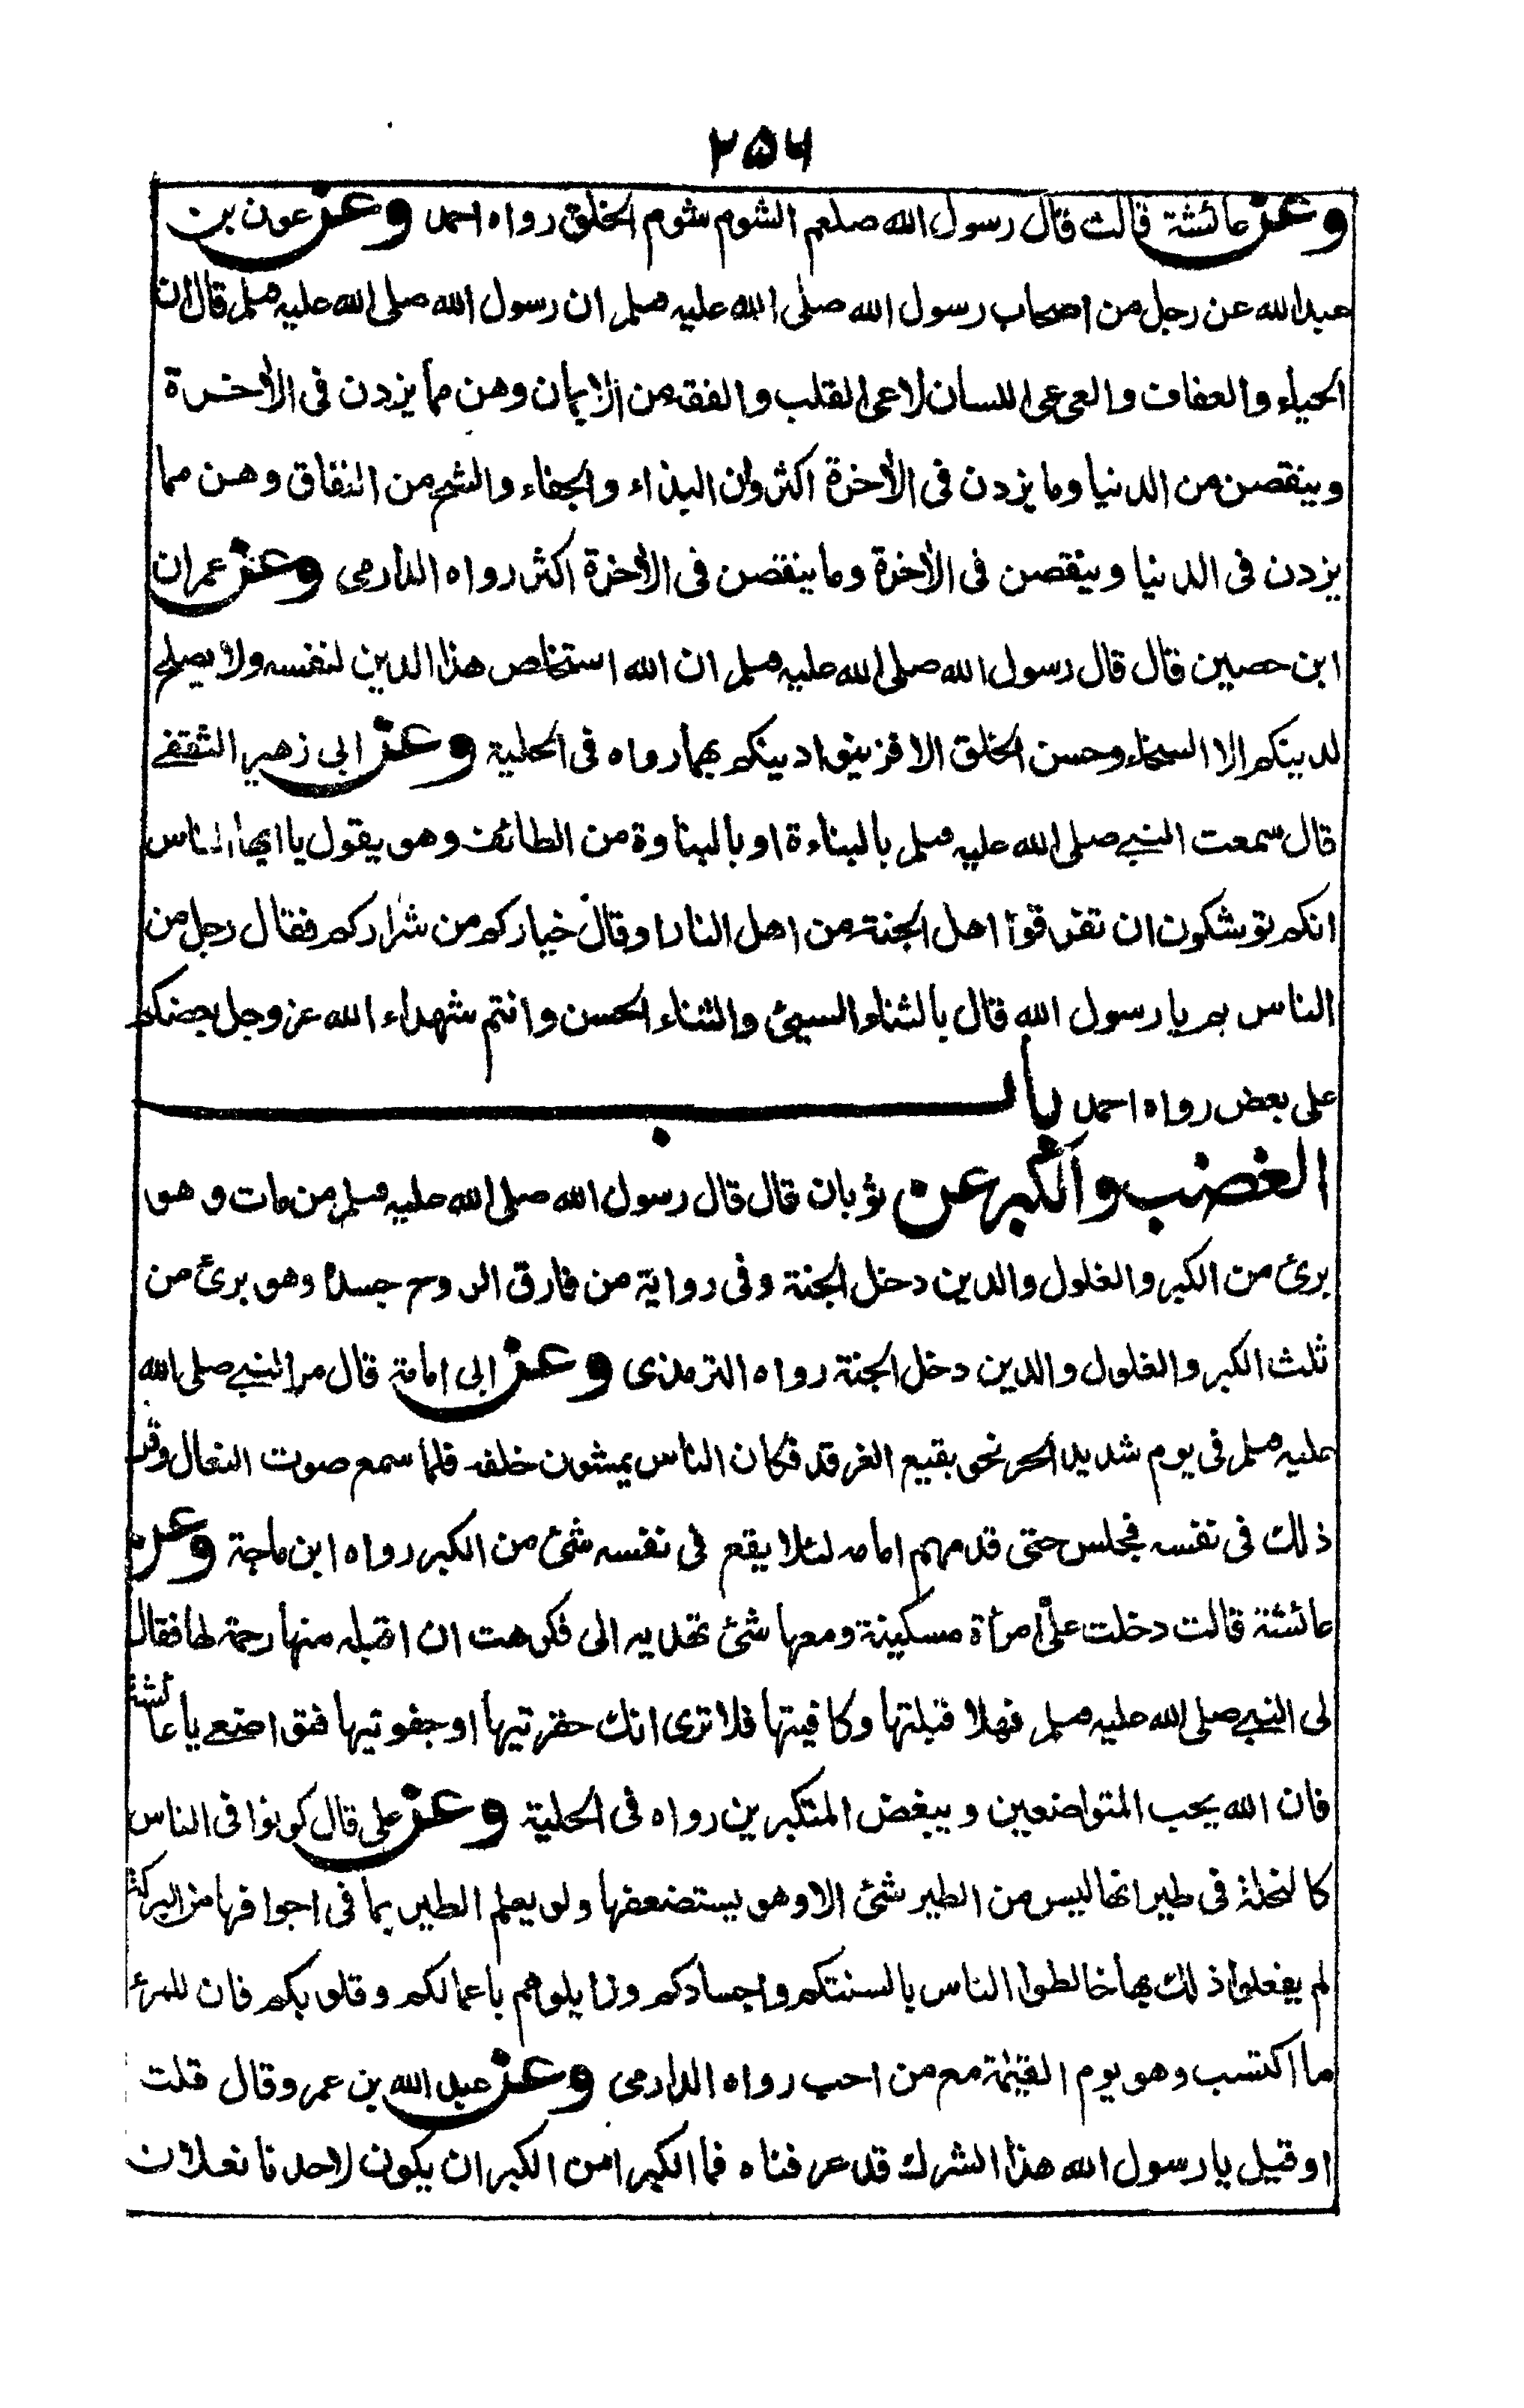 ۲۵۶
وعن عائشة قالت قال رسول الله صلعم الشوم شوم الخلق رواه احمد وعن عون بن
عبد الله عن رجل من اصحاب رسول الله صلى الله عليه وسلم ان رسول الله صلى الله عليه وسلم قال ان
الحياء والعفاف والعى عى اللسان لا عى القلب والفقه من الايمان وهن مما يزدن فى الأخرة
وينقصن من الدنيا وما يزدن فى الأخرة اكثر وان البذاء والجفاء والشح من النفاق وهن مما
يزدن فى الدنيا وينقصن فى الأخرة وما ينقصن فى الأخرة اكثر رواه الدارمى وعن عمران
ابن حصين قال قال رسول الله صلى الله عليه وسلم ان الله استخلص هذا الدين لنفسه ولا يصلح
لدينكم الا السخاء وحسن الخلق الا فزينوا دينكم بهما رواه فى الحلية وعن ابى زهير الثقفے
قال سمعت النبے صلى الله عليه وسلم بالبناءة او بالبناوة من الطائف وهو يقول يا ايها الناس
انكم توشكون ان تفرقوا اهل الجنة من اهل النار او قال خياركم من شراركم فقال رجل من
الناس بم يا رسول الله قال بالثناء السيئ والثناء الحسن وانتم شهداء الله عز وجل بعضكم
على بعض رواه احمد باب
الغضب والكبر عن ثوبان قال قال رسول الله صلى الله عليه وسلم من مات وهو
برئ من الكبر والغلول والدين دخل الجنة وفى رواية من فارق الروح جسده وهو برئ من
ثلث الكبر والغلول والدين دخل الجنة رواه الترمذى وعن ابى امامة قال مر النبے صلى الله
عليه وسلم فى يوم شديد الحر نحو بقيع الغرقد فكان الناس يمشون خلفه فلما سمع صوت النعال وقر
ذلك فى نفسه فجلس حتى قدمهم امامه لئلا يقع فى نفسه شئ من الكبر رواه ابن ماجة وعن
عائشة قالت دخلت علىّ امرأة مسكينة ومعها شئ تهديه الى فكرهت ان اقبله منها رحمة لها فقال
لى النبے صلى الله عليه وسلم فهلا قبلتها وكافيتها فلا ترى انك حقرتيها او جفوتيها فتواضعے يا عائشة
فان الله يحب المتواضعين ويبغض المتكبرين رواه فى الحلية وعن على قال كونوا فى الناس
كالنحلة فى طيرانها ليس من الطير شئ الا وهو يستضعفها ولو يعلم الطير بما فى اجوافها من البركة
لم يفعلوا ذلك بها خالطوا الناس بالسنتكم واجسادكم وزايلوهم باعمالكم وقلوبكم فان للمرء
ما اكتسب وهو يوم القيمة مع من احب رواه الدارمى وعن عبد الله بن عمر وقال قلت
او قيل يا رسول الله هذا الشرك قد عرفناه فما الكبر امن الكبر ان يكون لاحدنا نعلان